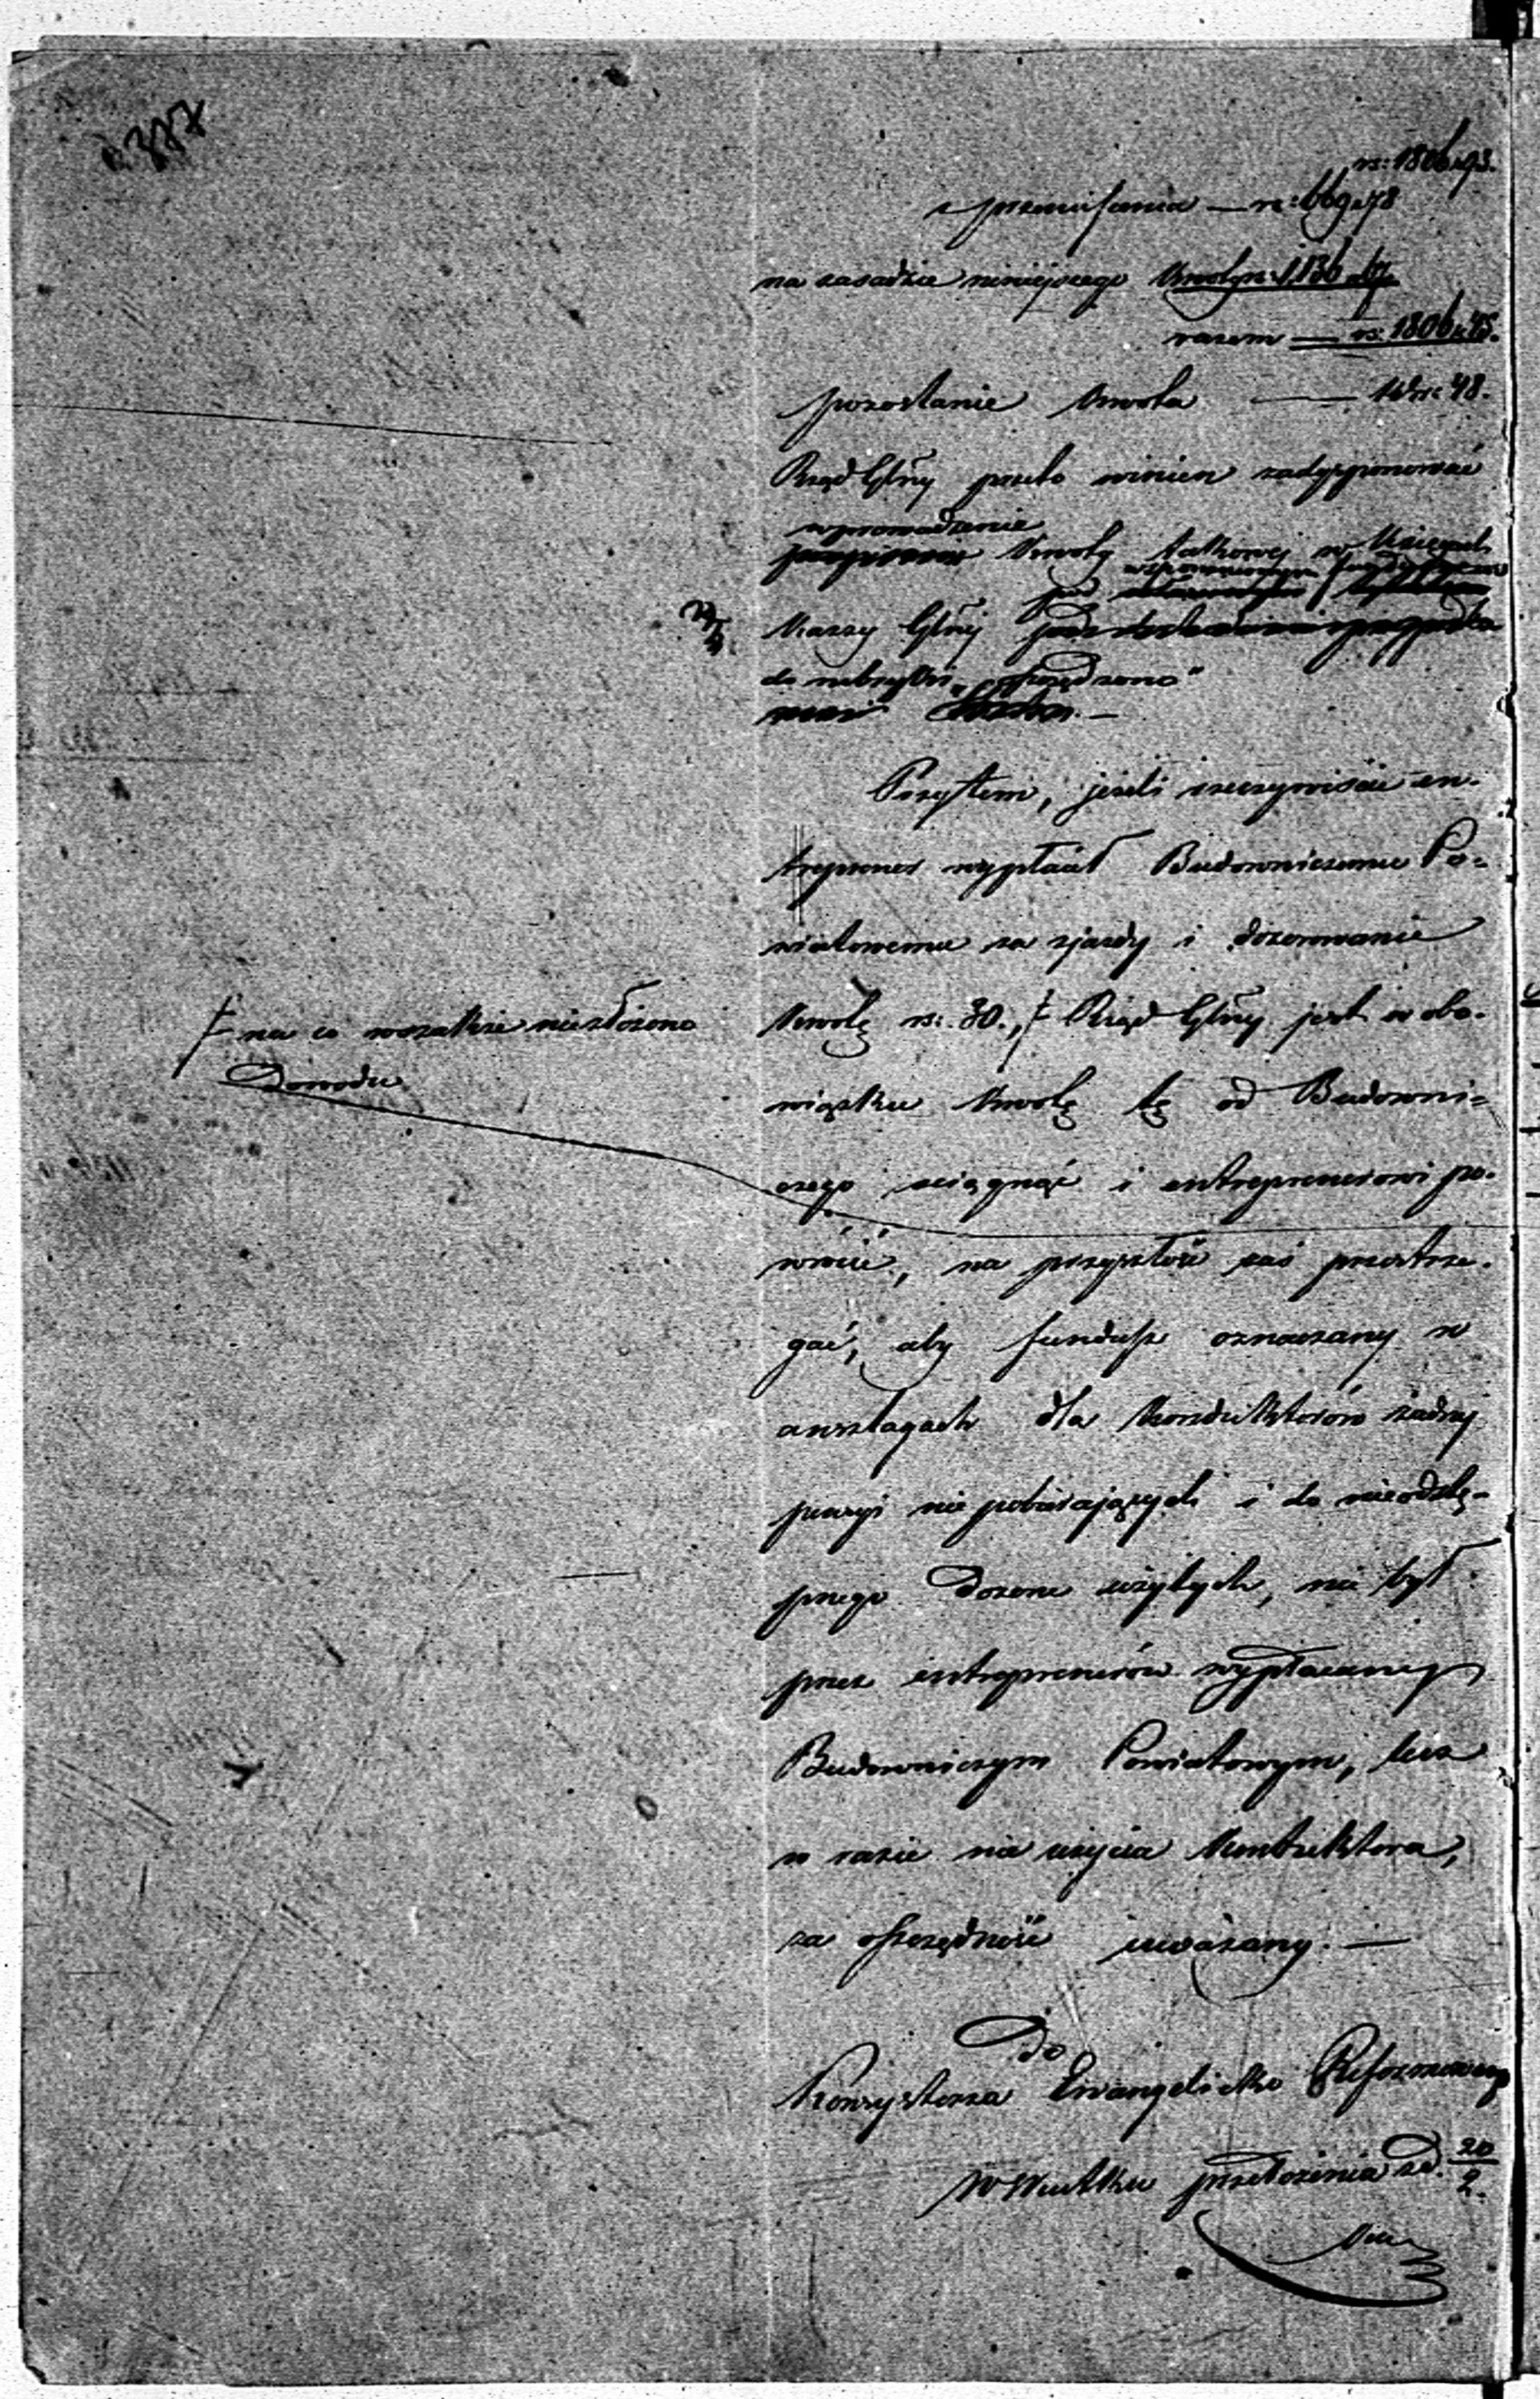 rs: 1806 k 93.
z przeniesienia — rs: 669 k 78
na zasadzie niniejszego Kwotę rs: 1,136 k 67
razem — rs: 1806 k 45.
pozostanie kwota — k 48.
Rząd Głny przeto winien zadysponować
wprowadzenie
Kwoty takowej w Księgach
pod
Kassy Głnéj
do rubryki „oszczędzono"
Przytem, jeżeli rzeczywiście en-
treprener wypłacił Budowniczemu Po-
wiatowemu za zjazdy i dozorowanie
Kwotę rs: 30., Rząd Głny jest w obo-
na co wszakże niezłożono
Dowodu
wiązku Kwotę tę od Budowni-
czego ściągnąć i entreprenerowi po-
wrócić, na przyszłość zaś przestrze-
gać, aby fundusz oznaczany w
anszlagach dla Konduktorów żadnej
pensyi nie pobierających i do nieodstę-
pnego Dozoru użytych, nie był
przez entreprenerów wypłacany
Budowniczym Powiatowym, lecz
w razie nie użycia Konduktora,
za oszczędność uważany. —
Do
Konsystorza Ewangelicko Reformowanego
W skutku przełożenia z d. 20/2.